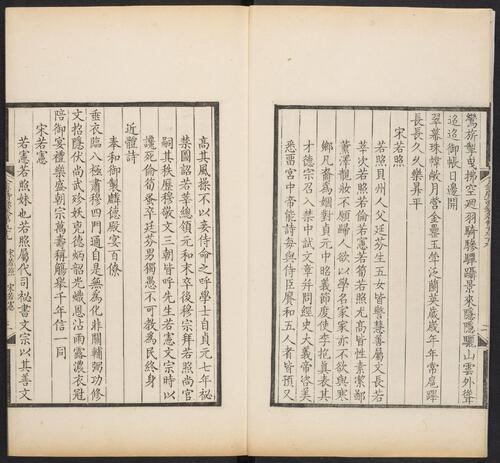 鸞旂掣曳拂空迴羽騎驂驔躡景來隱隱驪山雲外聳
迢迢御帳日邊開
翠幕珠幃敞月營金罍玉斝泛蘭英歲歲年年常扈蹕
長長久久樂昇平
宋若照
若照貝州人父廷芬生五女皆警慧善屬文長若
莘次若照若倫若憲若荀若照尤高皆性素潔鄙
薰澤靚妝不願歸人欲以學名家家亦不欲與寒
鄉凡裔爲姻對貞元中昭義節度使李抱真表其
才德宗召入禁中試文章并問經史大義帝咨美
悉畱宮中帝能詩每與侍臣賡和五人者皆預又
高其風操不以妾侍命之呼學士自貞元七年祕
禁圖詔若莘總領元和末卒後穆宗拜若照尚宮
嗣其秩歷穆敬文三朝皆呼先生若憲文宗時以
讒死倫荀蚤卒廷芬男獨愚不可教爲民終身
近體詩
奉和御製麟德殿宴百僚
垂衣臨八極肅穆四門通自是無為化非關輔弼功修
文招隱伏尚武珍妖克德炳韶光熾恩沾雨露濃衣冠
陪御宴禮樂盛朝宗萬壽稱觴舉千年信一同
宋若憲
若憲若照妹也若照屬代司祕書文宗以其善文